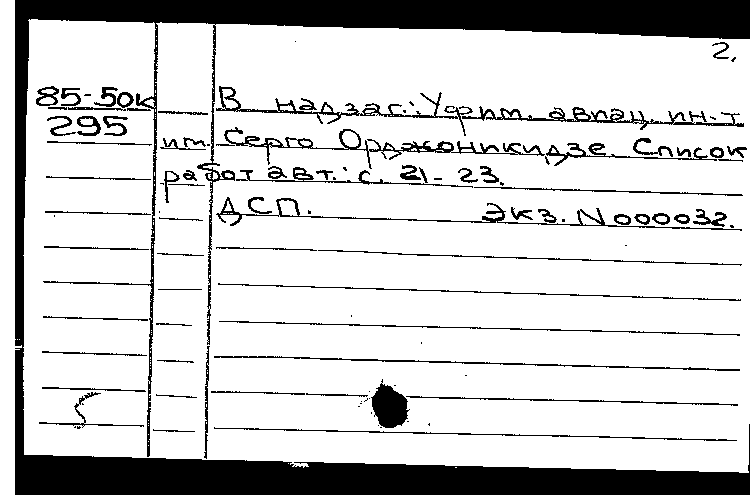 2.
85-50к В надзаг.: Уфим. авиац. ин-т
295 им. Серго Орджоникидзе. Список
работ авт.: с. 21-23.
ДСП. Экз. N 000032.